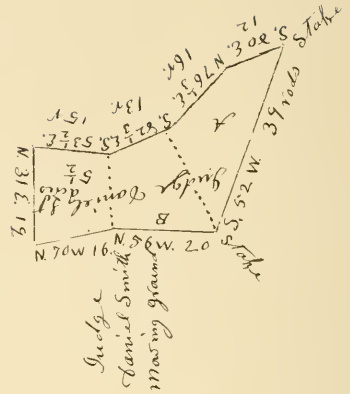 S. 80 E.
12
Stake
N 76 ½ E.
16 r.
S. 82 ½ E.
13 r.
S. 53 ½ E.
15 r
N. 31 E. 19
5 ½
acres
Judge Daniels
A
39 rods
S. 52 W.
S
Stake
B
N. 59 W. 20
N. 70 W 16
Judge
Daniel Smith
Mowing Ground